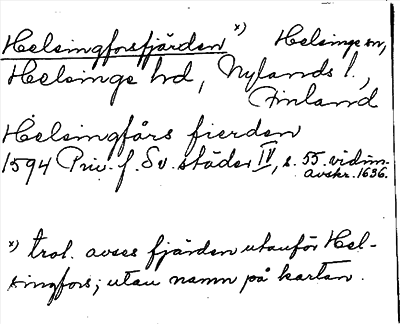 Helsingforsfjärden x) Helsinge sn,
Helsinge hd, Nylands l.,
Finland
Helsingfårs fierden
1594 Priv. f. Sv. städer IV, s. 55. vidim.
avskr. 1636.
x) trol. avses fjärden utanför Hel-
singfors; utan namn på kartan.